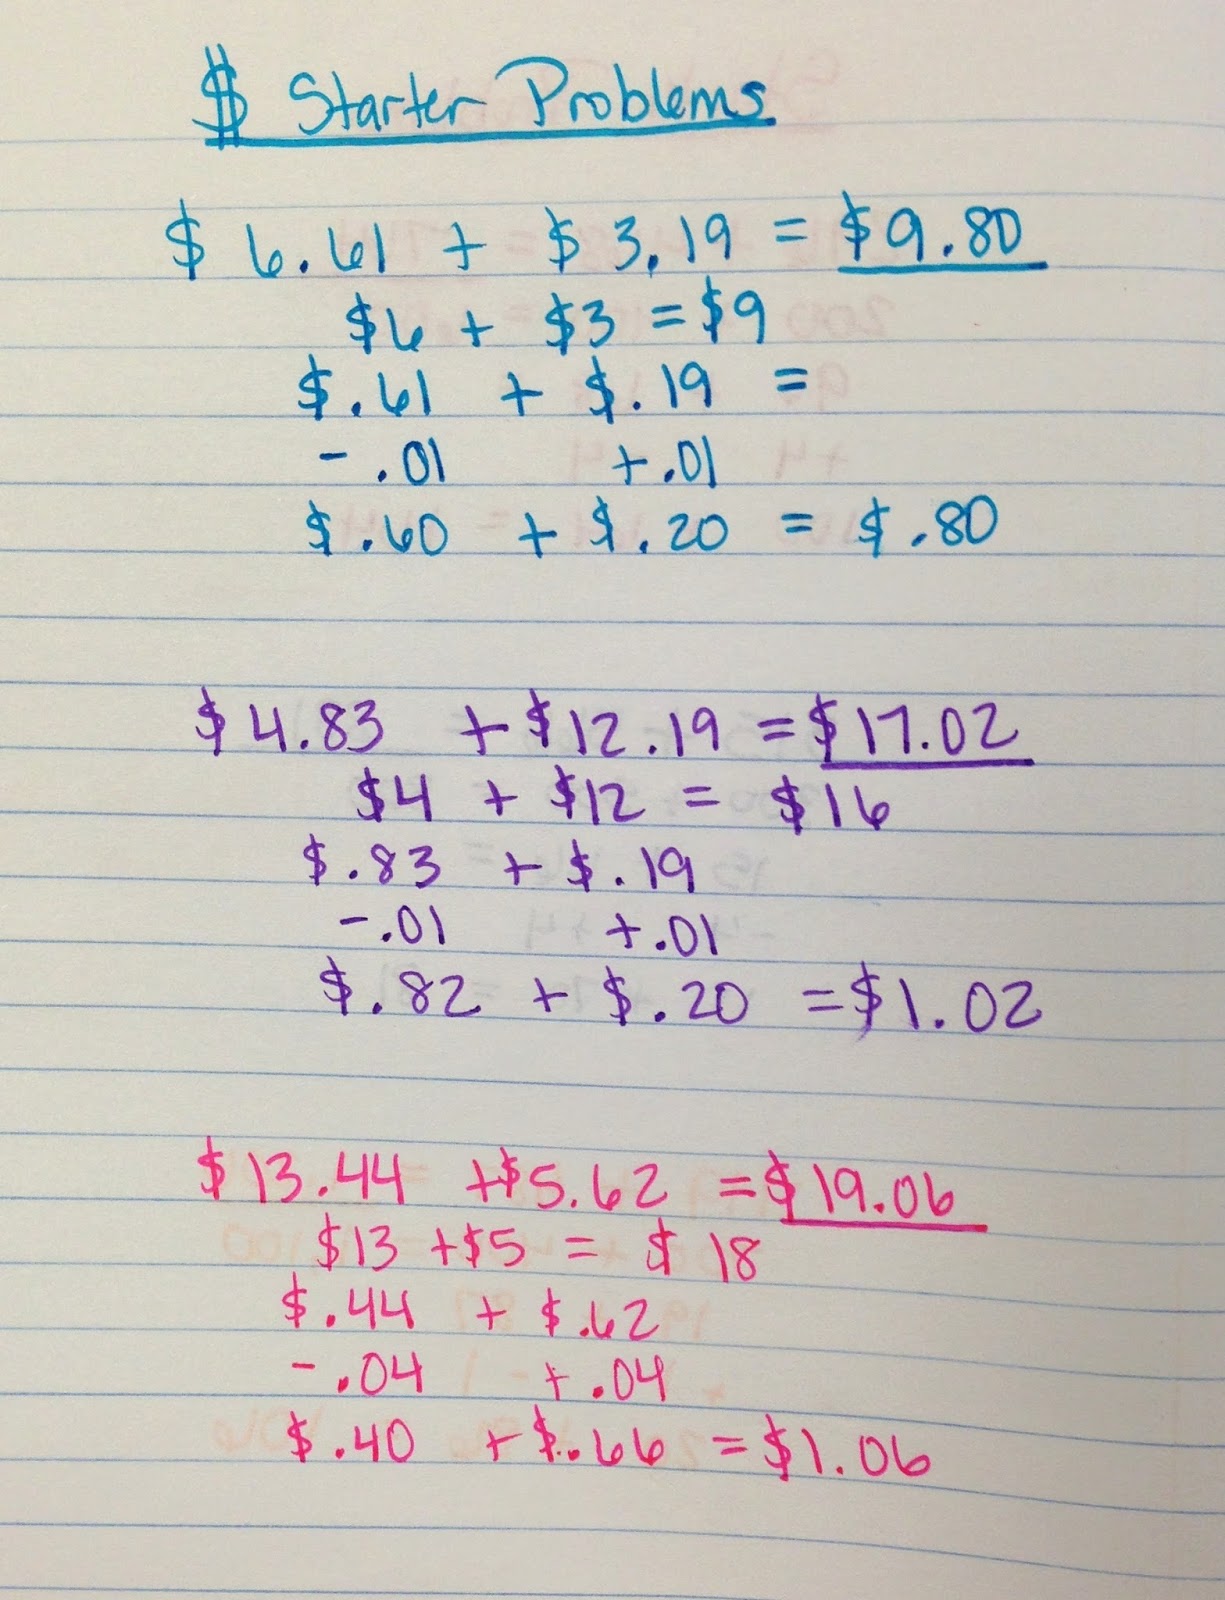 $ Starter Problems
$ 6.61 + $ 3.19 = $9.80
$6 + $3 = $9
$.61 + $.19 =
- .01 +.01
$.60 + $.20 = $.80
$4.83 + $12.19 = $17.02
$4 + $12 = $16
$.83 + $.19
-.01 +.01
$.82 + $.20 = $1.02
$13.44 +$5.62 = $19.06
$13 +$5 = $ 18
$.44 + $.62
- .04 + .04
$.40 + $.66 = $1.06